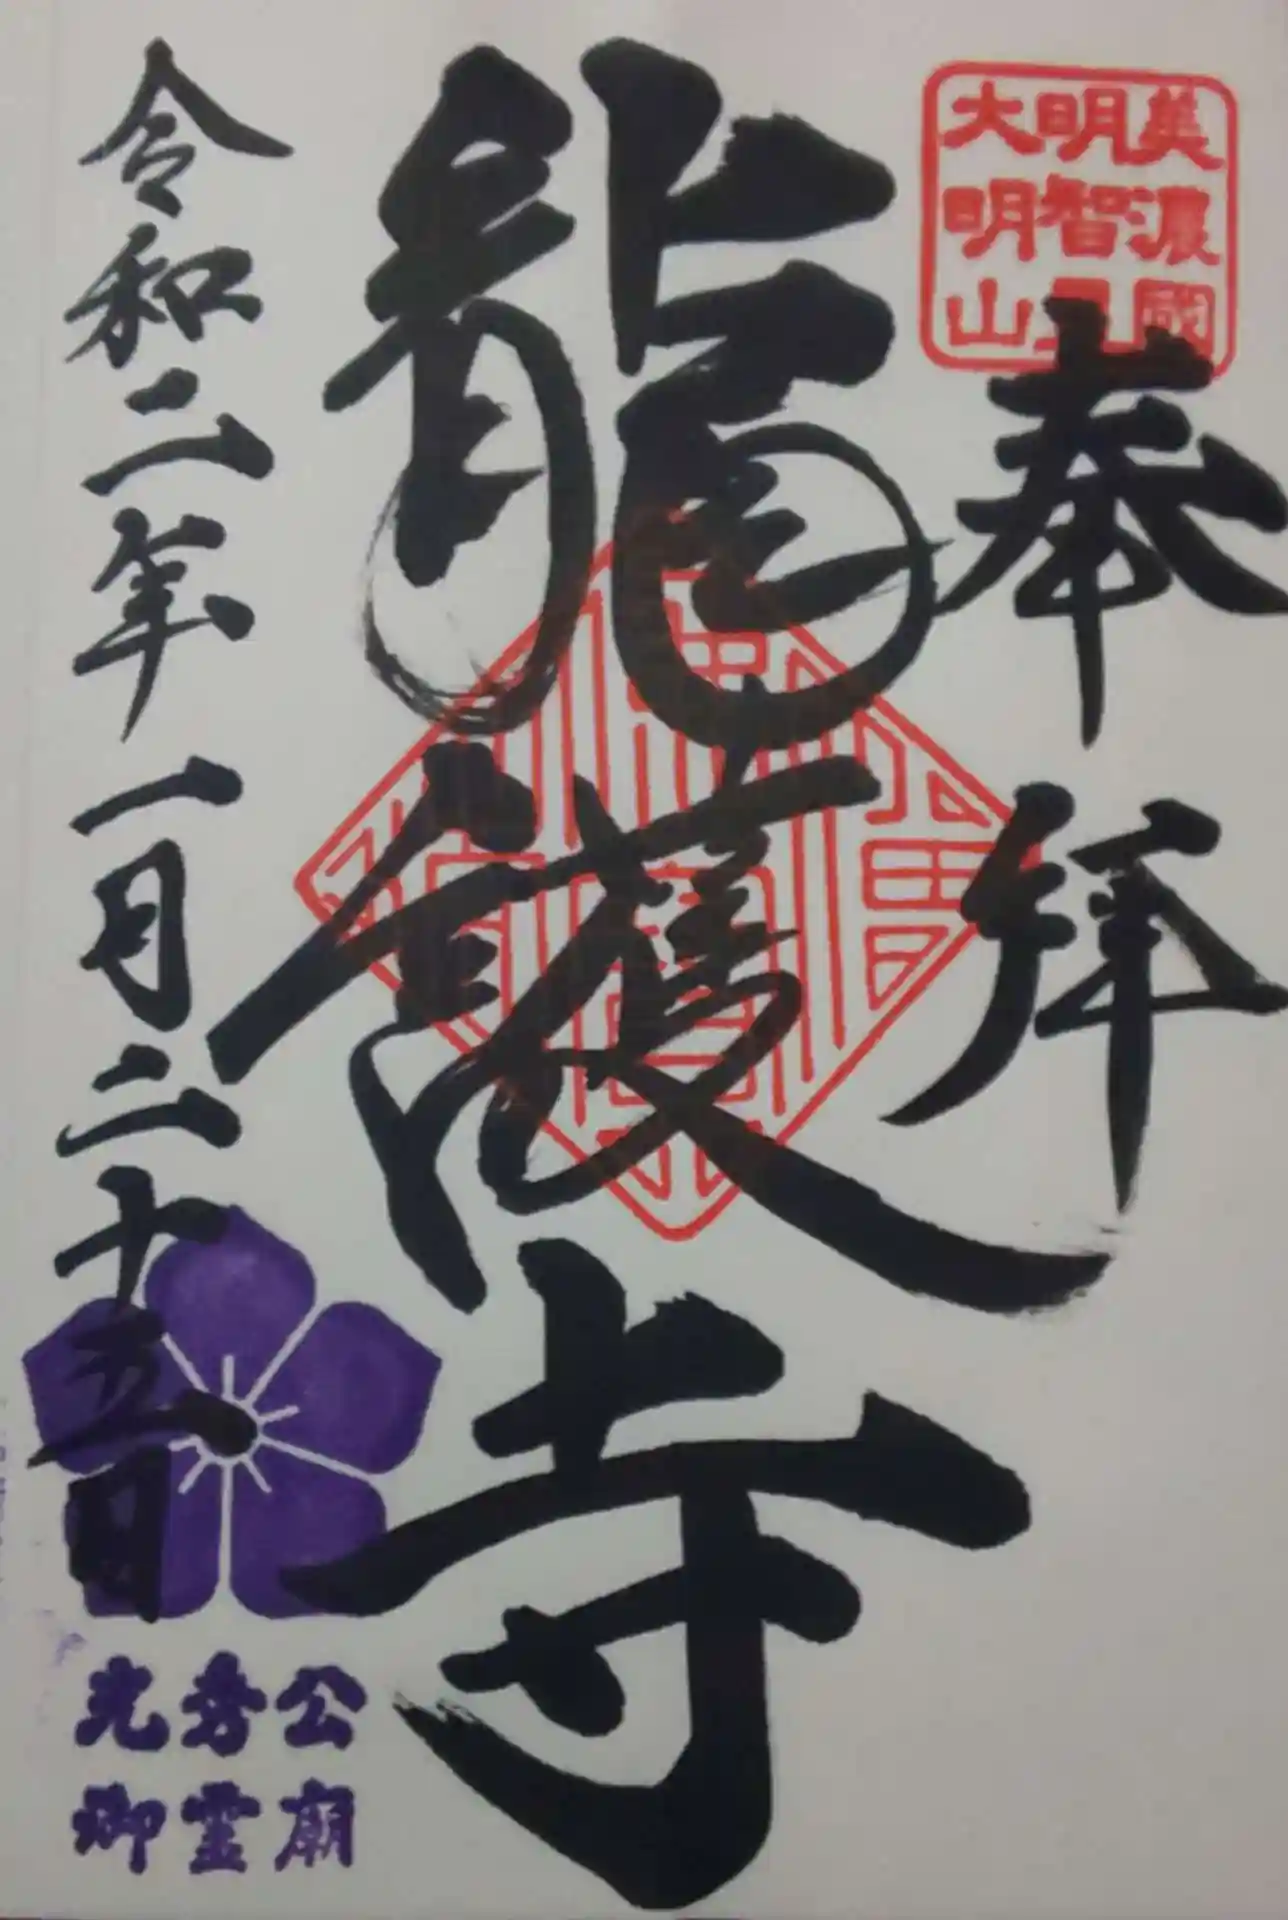 美濃國
明智
大明山
奉拝
龍護寺
令和二年一月二十五日
光秀公
御霊廟